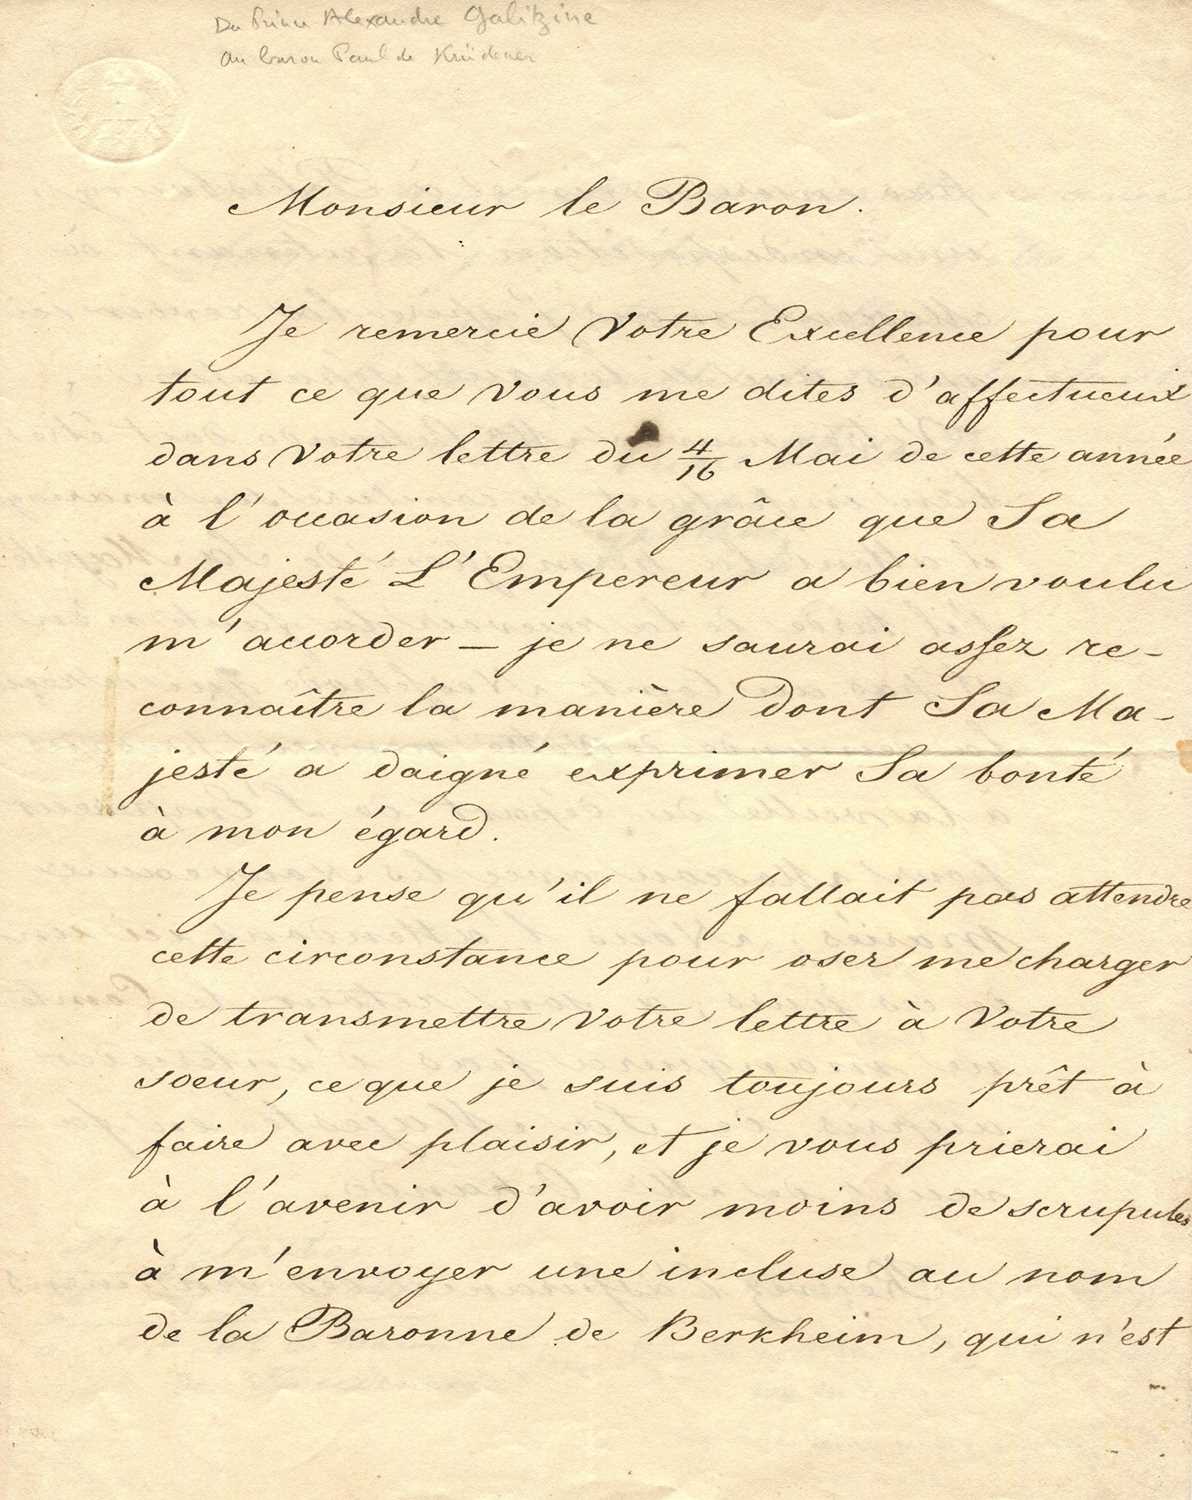 Du Prince Alexandre Galitzine
au baron Paul de Krüdener
Monsieur le Baron.
Je remercie Votre Excellence pour
tout ce que Vous me dites d'affectueux
dans Votre lettre du 4/16 Mai de cette année
à l'occasion de la grâce que Sa
Majesté L'Empereur a bien voulu
m'accorder – je ne saurai assez re-
connaître la manière dont Sa Ma-
jesté a daigné exprimer Sa bonté
à mon égard.
Je pense qu'il ne fallait pas attendre
cette circonstance pour oser me charger
de transmettre Votre lettre à Votre
soeur, ce que je suis toujours prêt à
faire avec plaisir, et je vous prierai
à l'avenir d'avoir moins de scrupules
à m'envoyer une incluse au nom
de la Baronne de Berkheim, qui n'est